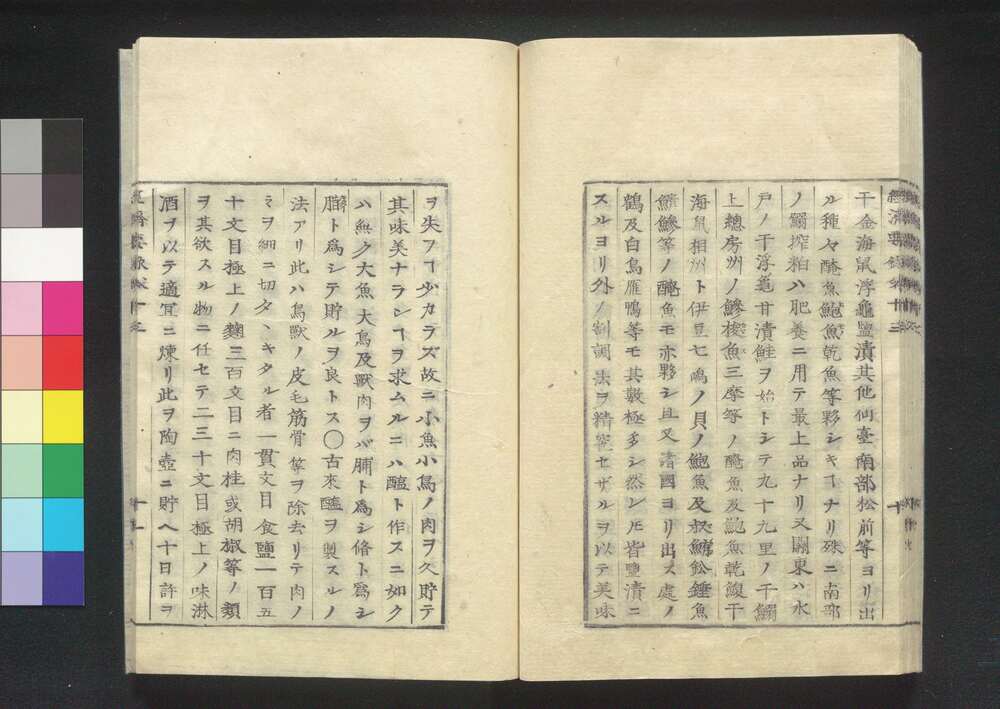 經濟要錄卷十三
干金海鼠浮龜鹽漬其他仙臺南部松前等ヨリ出
ル種々醃魚鮑魚乾魚等夥シキヿナリ殊ニ南部
ノ鰯搾粕ハ肥養ニ用テ最上品ナリ又關東ハ水
戸ノ干浮龜甘漬鮭ヲ始トシテ九十九里ノ干鰯
上總房州ノ鰺梭魚三摩等ノ醃魚及鮑魚乾鰒干
海鼠相州ト伊豆七嶋ノ貝ノ鮑魚及鮫鱅鈆錘魚
鱪鰺等ノ醃魚モ亦夥シ且又諸國ヨリ出ス處ノ
鶴及白鳥雁鴨等モ其數極多シ然レ𪜈皆鹽漬ニ
スルヨリ外ノ割調法ヲ精密セザルヲ以テ美味
十
ヲ失フヿ少カラズ故ニ小魚小鳥ノ肉ヲ久貯テ
其味美ナランヿヲ求ムルニハ醢ト作スニ如ク
ハ無ク大魚大鳥及獸肉ヲバ脯ト爲シ脩ト爲シ
腊ト爲シテ貯ルヲ良トス〇古來醢ヲ製スルノ
法アリ此ハ鳥獸ノ皮毛筋骨等ヲ除去リテ肉ノ
ミヲ細ニ切タヽキタル者一貫文目食鹽一百五
十文目極上ノ麹三百文目ニ肉桂或胡椒等ノ類
ヲ其欲スル物ニ任セテ二三十文目極上ノ味淋
酒ヲ以テ適宜ニ煉リ此ヲ陶壺ニ貯ヘ十日許ヲ
十一